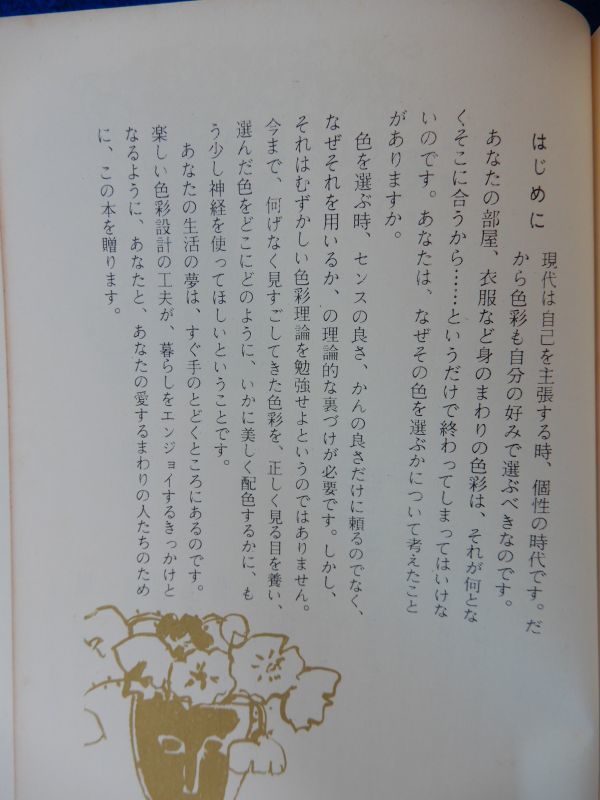 はじめに
現代は自己を主張する時、個性の時代です。だ
から色彩も自分の好みで選ぶべきなのです。
あなたの部屋、衣服など身のまわりの色彩は、それが何とな
くそこに合うから……というだけで終わってしまってはいけな
いのです。あなたは、なぜその色を選ぶかについて考えたこと
がありますか。
色を選ぶ時、センスの良さ、かんの良さだけに頼るのでなく、
なぜそれを用いるか、の理論的な裏づけが必要です。しかし、
それはむずかしい色彩理論を勉強せよというのではありません。
今まで、何げなく見すごしてきた色彩を、正しく見る目を養い、
選んだ色をどこにどのように、いかに美しく配色するかに、も
う少し神経を使ってほしいということです。
あなたの生活の夢は、すぐ手のとどくところにあるのです。
楽しい色彩設計の工夫が、暮らしをエンジョイするきっかけと
なるように、あなたと、あなたの愛するまわりの人たちのため
に、この本を贈ります。